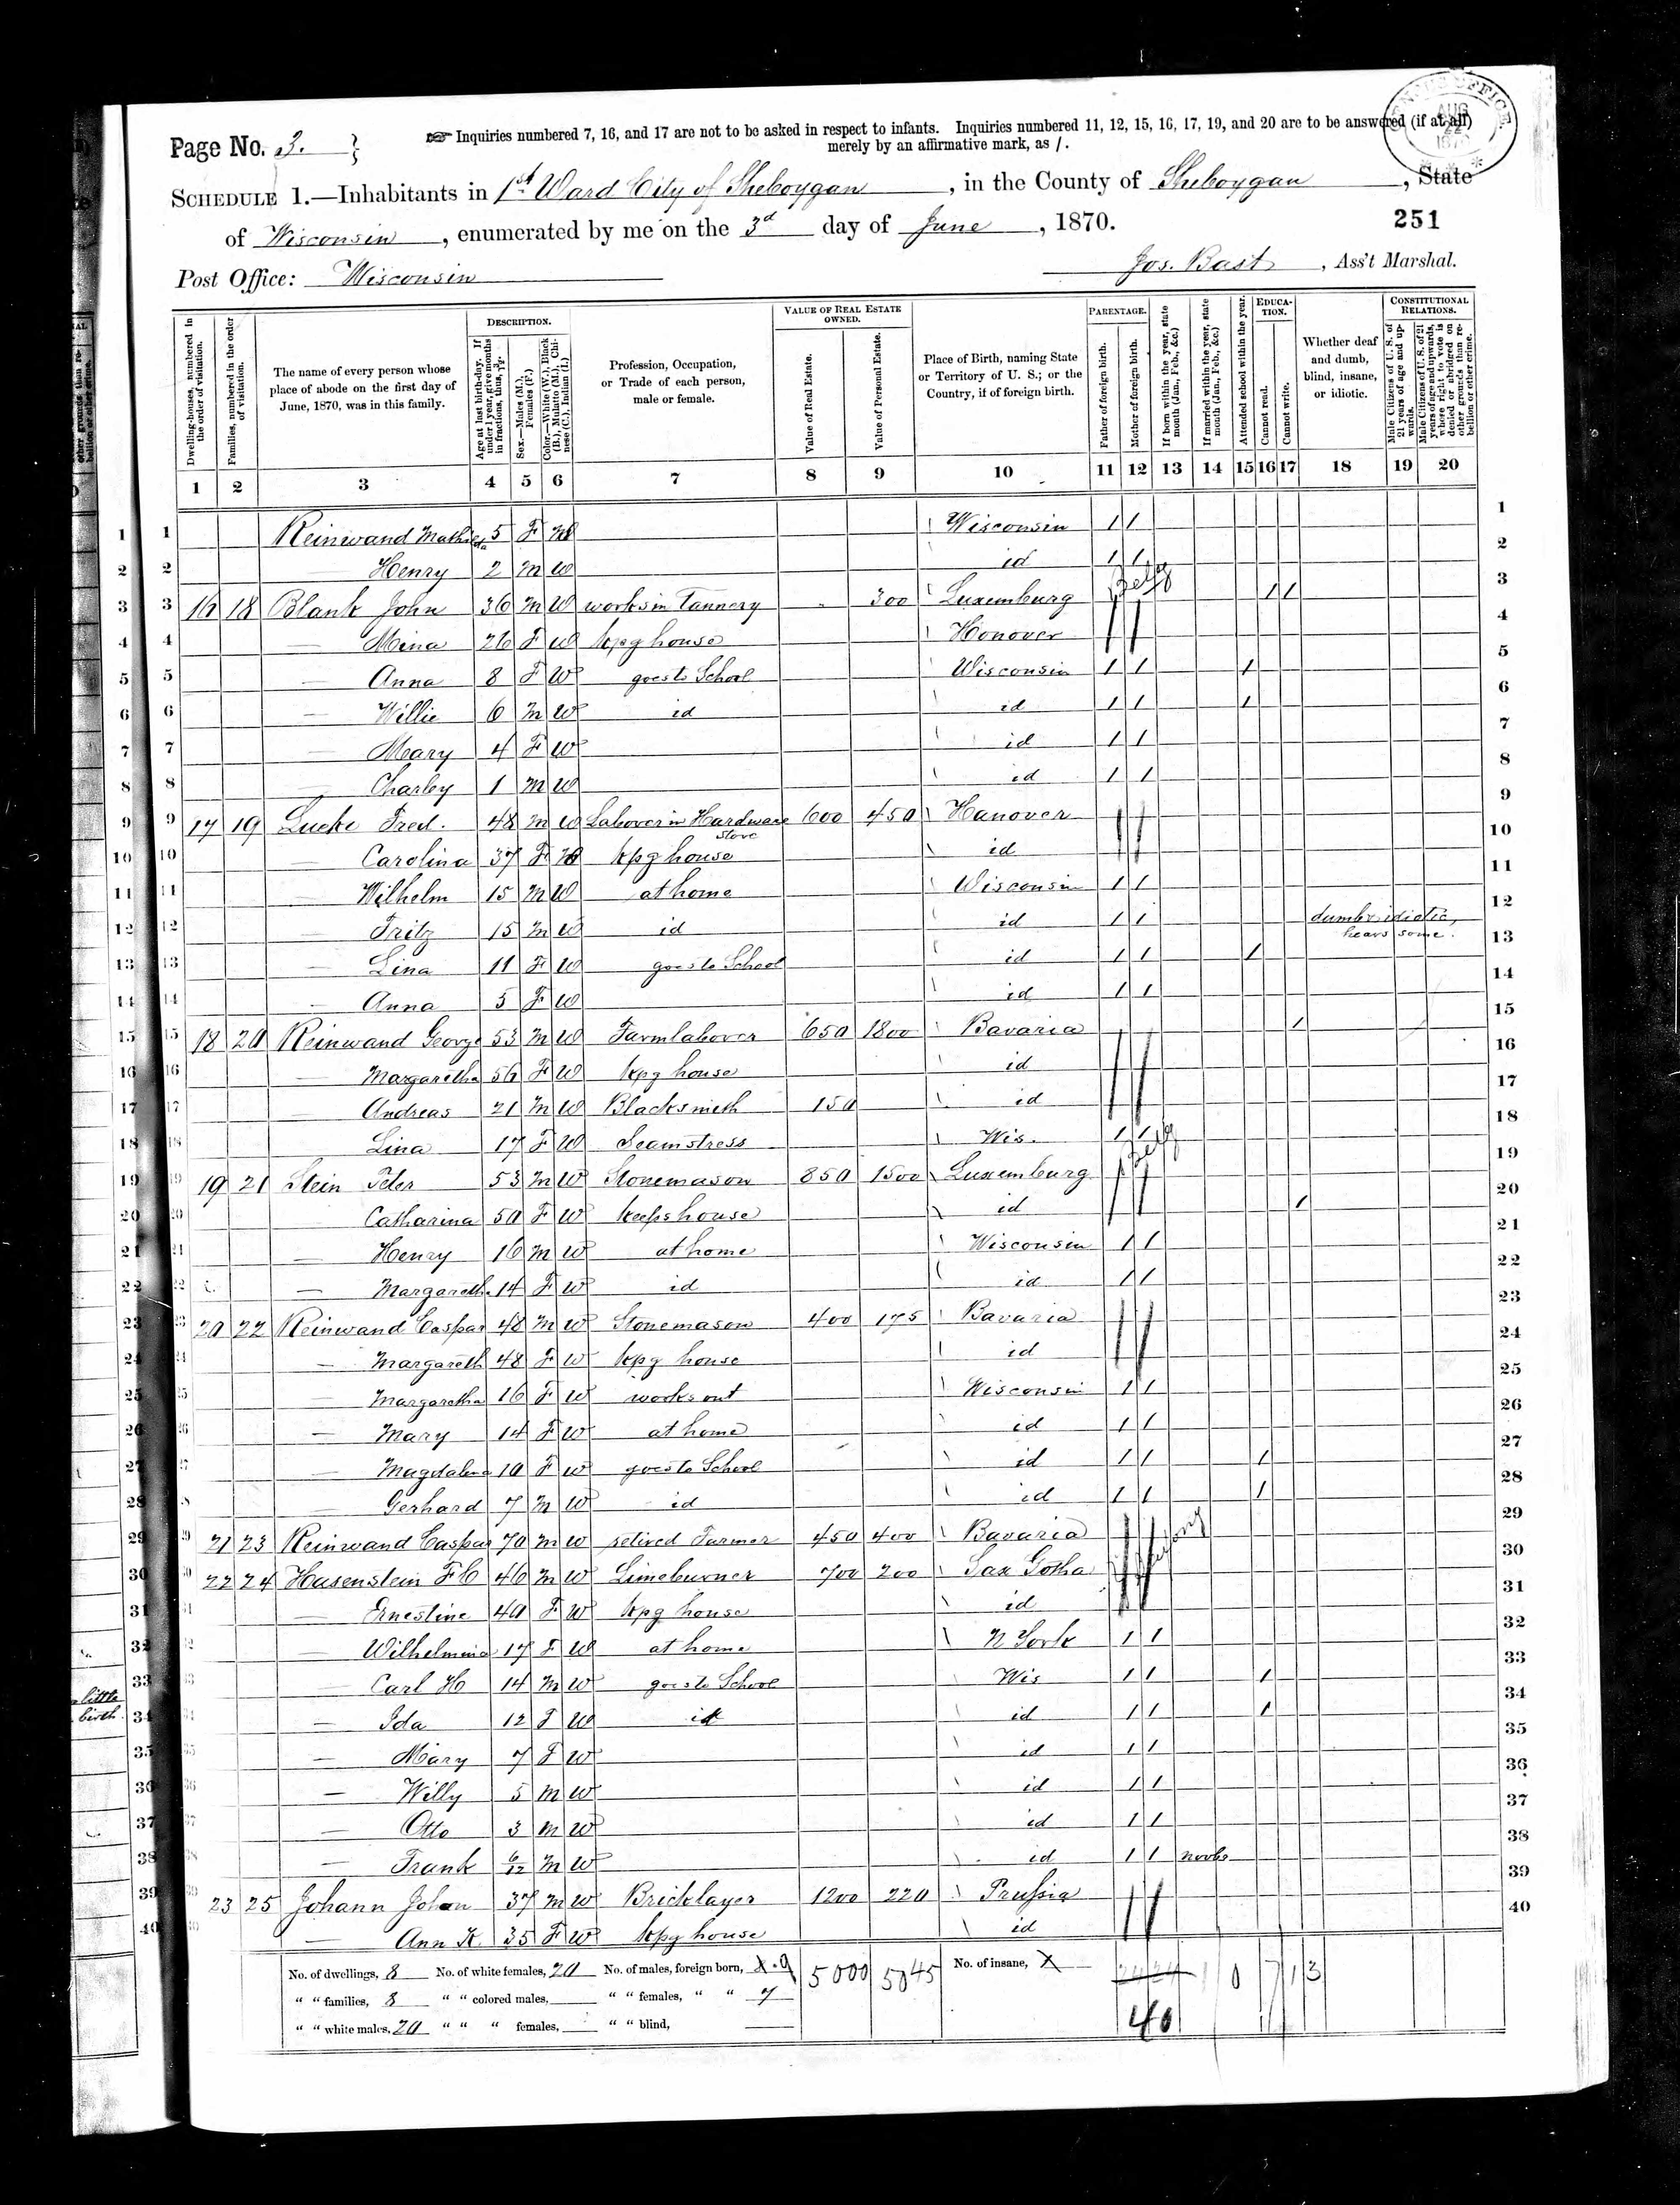 Page No. 3.
☞ Inquiries numbered 7, 16, and 17 are not to be asked in respect to infants. Inquiries numbered 11, 12, 15, 16, 17, 19, and 20 are to be answered (if at all)
merely by an affirmative mark, as /.
SCHEDULE 1.—Inhabitants in 1st Ward City of Sheboygan, in the County of Sheboygan, State
of Wisconsin, enumerated by me on the 3d day of June, 1870.
251
Post Office: Wisconsin
Jos. Bast, Ass't Marshal.
Dwelling-houses, numbered in the order of visitation.
Families, numbered in the order of visitation.
The name of every person whose place of abode on the first day of June, 1870, was in this family.
DESCRIPTION.
Age at last birth-day. If under 1 year, give months in fractions, thus, 3/12.
Sex.—Males (M.), Females (F.)
Color.—White (W.), Black (B.), Mulatto (M.), Chinese (C.), Indian (I.)
Profession, Occupation, or Trade of each person, male or female.
VALUE OF REAL ESTATE OWNED.
Value of Real Estate.
Value of Personal Estate.
Place of Birth, naming State or Territory of U. S.; or the Country, if of foreign birth.
PARENTAGE.
Father of foreign birth.
Mother of foreign birth.
If born within the year, state month (Jan., Feb., &c.)
If married within the year, state month (Jan., Feb., &c.)
Attended school within the year.
EDUCATION.
Cannot read.
Cannot write.
Whether deaf and dumb, blind, insane, or idiotic.
CONSTITUTIONAL RELATIONS.
Male Citizens of U. S. of 21 years of age and upwards.
Male Citizens of U. S. of 21 years of age and upwards, whose right to vote is denied or abridged on other grounds than rebellion or other crime.
1 2 3 4 5 6 7 8 9 10 11 12 13 14 15 16 17 18 19 20
1 Reinwand 5 F W Wisconsin / / 1
2 — Henry 2 M W id / / 2
3 16 18 Blank John 36 M W works in Tannery 300 Luxemburg / / 3
4 — Mina 26 F W kpg house Honover 4
5 — Anna 8 F W goes to School Wisconsin / / / 5
6 — Willie 6 M W id id / / / 6
7 — Mary 4 F W id / / 7
8 — Charley 1 M W id / / 8
9 17 19 Lucke Fred. 48 M W Labover in Hardware Store 600 450 Hanover 9
10 — Carolina 37 F W kpg house id 10
11 — Wilhelm 15 M W at home Wisconsin / / 11
12 — Fritz 15 M W id id / / dumb, idiotic, hears some. 12
13 — Lina 11 F W goes to School id / / / 13
14 — Anna 5 F W id / / 14
15 18 20 Reinwand George 53 M W Farmlaborer 650 1800 Bavaria / 15
16 — Margaretha 56 F W kpg house id 16
17 — Andreas 21 M W Blacksmith 150 id 17
18 — Lina 17 F W Seamstress Wis. / / 18
19 19 21 Stein Peter 53 M W Stonemason 850 1500 Luxemburg 19
20 Catharina 50 F W keeps house id / 20
21 — Henry 16 M W at home Wisconsin / / 21
22 — Margaretha 14 F W id id / / 22
23 20 22 Reinwand Caspar 48 M W Stonemason 400 175 Bavaria 23
24 — Margareth 48 F W kpg house id 24
25 — Margaretha 16 F W works out Wisconsin / / 25
26 — Mary 14 F W at home id / / 26
27 — Magdalena 10 F W goes to School id / / / 27
28 — Gerhard 7 M W id id / / / 28
29 21 23 Reinwand Caspar 70 M W retired Farmer 450 400 Bavaria 29
30 22 24 Hasenstein F C 46 M W Limeburner 700 200 Sax Gotha 30
31 — Ernestine 40 F W kpg house id 31
32 — Wilhelmina 17 F W at home N York / / 32
33 — Carl H 14 M W goes to School Wis / / / 33
34 — Ida 12 F W id id / / / 34
35 — Mary 7 F W id / / 35
36 — Willy 5 M W id / / 36
37 — Otto 3 M W id / / 37
38 — Frank 6/12 M W id / / 38
39 23 25 Johann John 37 M W Bricklayer 1200 220 Prussia 39
40 — Ann K. 35 F W kpg house id 40
No. of dwellings, 8 No. of white females, 20 No. of males, foreign born, 9 5000 5045 No. of insane, X
" " families, 8 " " colored males, " " females, " " 7
" " white males, 20 " " " females, " " blind, 40
little
birth